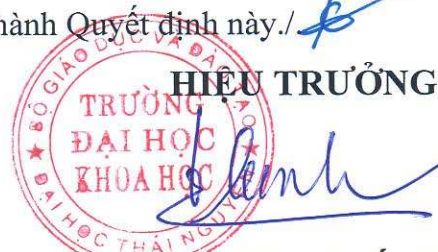 hành Quyết định này./.
HIỆU TRƯỞNG
BỘ GIÁO DỤC VÀ ĐÀO TẠO
TRƯỜNG
ĐẠI HỌC
KHOA HỌC
ĐẠI HỌC THÁI NGUYÊN